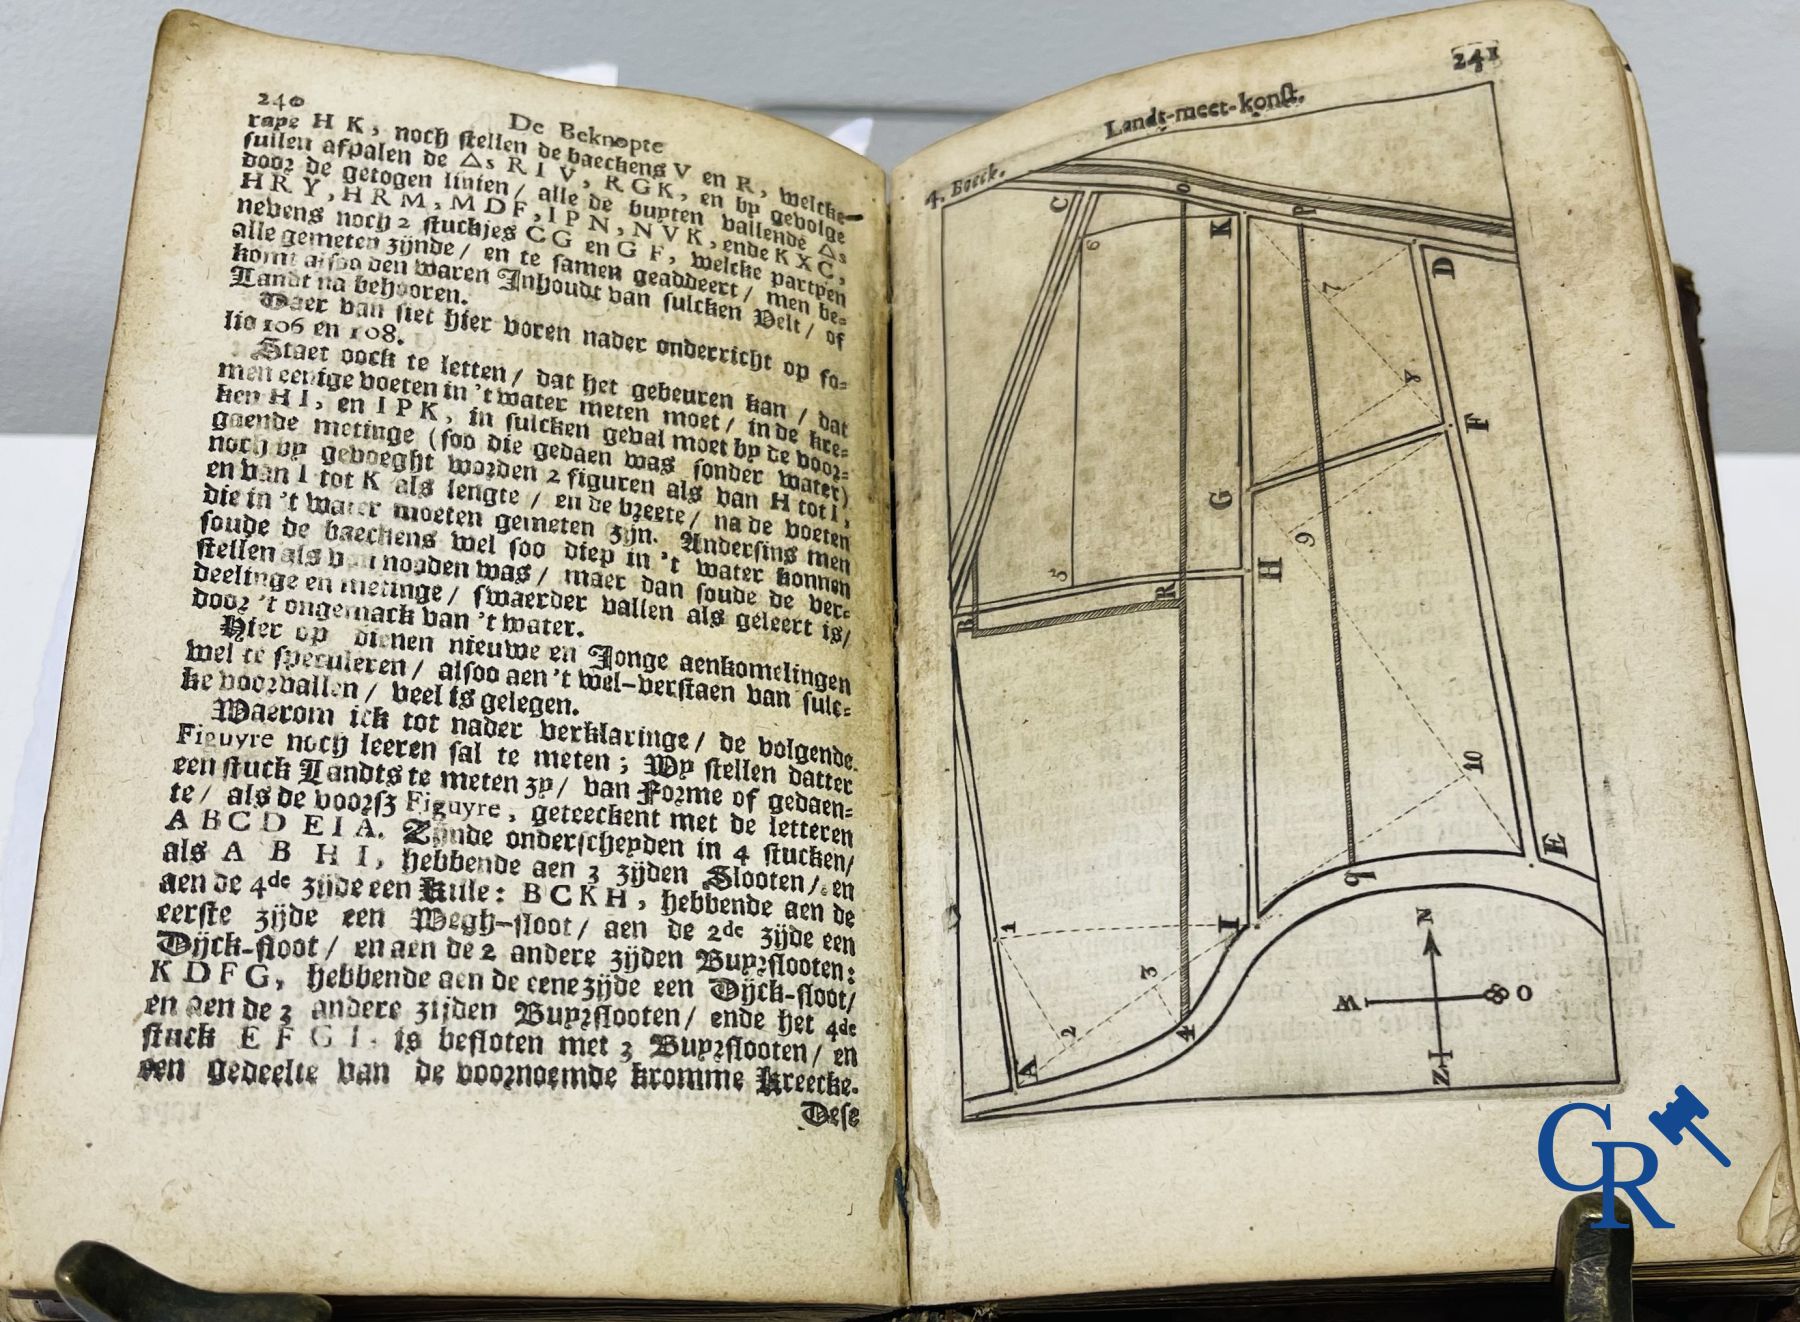 240
De Beknopte
rape H K, noch stellen de baeckens V en R, welcke
sullen afpalen de △s R I V, R G K, en by gevolge
door de getogen linien / alle de buyten vallende △s
H R Y, H R M, M D F, I P N, N V K, ende K X C,
nevens noch 2 stuckjes C G en G F, welcke partyen
alle gemeten zijnde / en te samen geaddeert / men be-
komt alsoo den waren Inhoudt van sulcken Velt / of
Landt na behooren.
Daer van siet hier voren nader onderricht op fo-
lio 106 en 108.
Staet oock te letten / dat het gebeuren kan / dat
men eenige voeten in 't water meten moet / in de kre-
ken H I, en I P K, in sulcken geval moet by de voor-
gaende metinge (soo die gedaen was sonder water)
noch by gevoeght worden 2 figuren als van H tot I,
en van I tot K als lengte / en de breete / na de voeten
die in 't water moeten gemeten zijn. Andersins men
soude de baeckens wel soo diep in 't water konnen
stellen als van nooden was / maer dan soude de ver-
deelinge en metinge / swaerder vallen als geleert is /
door 't ongemack van 't water.
Hier op dienen nieuwe en Jonge aenkomelingen
wel te speculeren / alsoo aen 't wel-verstaen van sulc-
ke voorvallen / veel is gelegen.
Waerom ick tot nader verklaringe / de volgende
Figuyre noch leeren sal te meten ; Wy stellen datter
een stuck Landts te meten zy / van Forme of gedaen-
te / als de voorsz Figuyre, geteeckent met de letteren
A B C D E I A. Zijnde onderscheyden in 4 stucken /
als A B H I, hebbende aen 3 zijden Slooten / en
aen de 4de zijde een Kille: B C K H, hebbende aen de
eerste zijde een Wegh-sloot / aen de 2de zijde een
Dijck-sloot / en aen de 2 andere zijden Buyrslooten:
K D F G, hebbende aen de eene zijde een Dijck-sloot /
en aen de 3 andere zijden Buyrslooten / ende het 4de
stuck E F G I, is besloten met 3 Buyrslooten / en
een gedeelte van de voornoemde kromme Kreecke.
Dese
241
Landt-meet-konst.
4. Boeck.
C
o
K
P
D
6
7
8
F
G
9
5
H
R
B
10
E
q
1
I
3
2
4
A
N
W
O
Z
GR